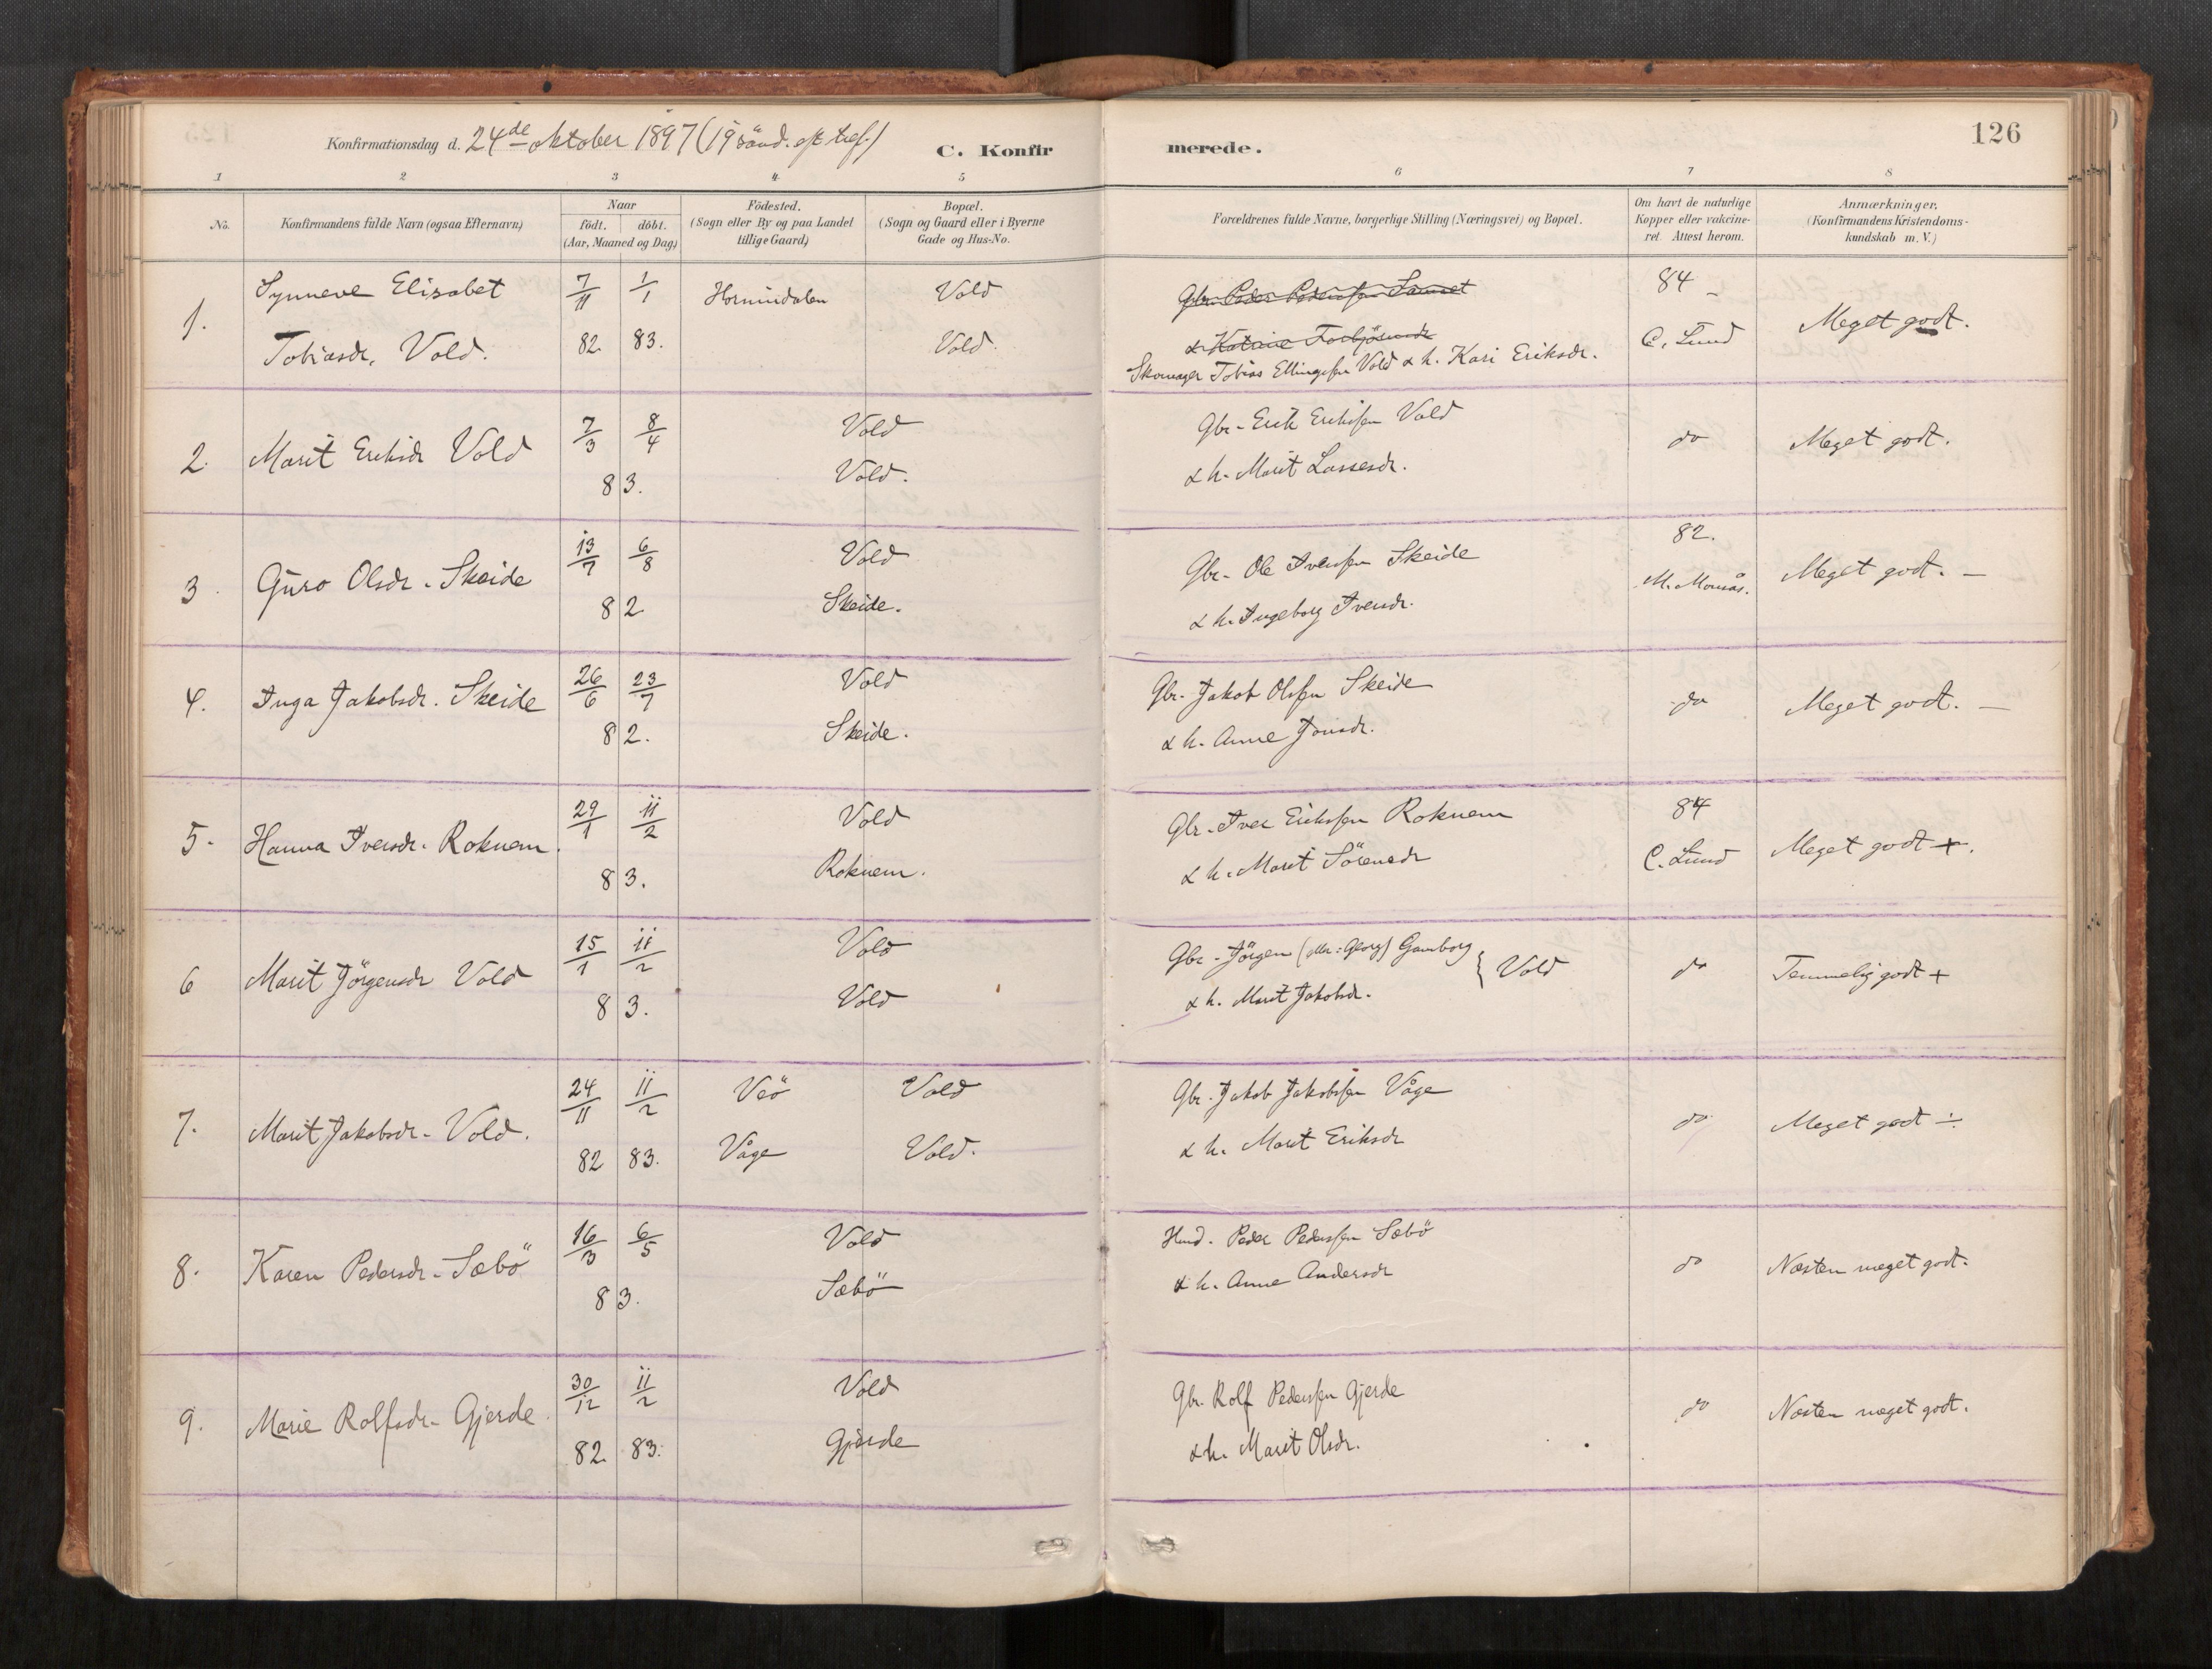 Konfirmationsdag d. 24de oktober 1897 (19 sönd. eft tref.)
C. Konfirmerede.
126
1 2 3 4 5 6 7 8
No.
Konfirmandens fulde Navn (ogsaa Efternavn)
Naar
födt. döbt.
(Aar, Maaned og Dag)
Födested.
(Sogn eller By og paa Landet
tillige Gaard)
Bopæl.
(Sogn og Gaard eller i Byerne
Gade og Hus-No.
Forældrenes fulde Navne, borgerlige Stilling (Næringsvei) og Bopæl.
Om havt de naturlige
Kopper eller vakcine-
ret. Attest herom.
Anmærkninger,
(Konfirmandens Kristendoms-
kundskab m. V.)
1. Synneve Elisabet 7/11 1/1 Hornindalen Vold Gbr. Peder Pedersen 84 – Meget godt.
Tobiasdr. Vold. 82. 83. Vold. & Katrine C. Lund
Skomager Tobias Ellingsen Vold & h. Kari Eriksdr.
2. Marit Eriksdr Vold 7/3 8/4 Vold Gbr. Erik Eriksen Vold do Meget godt.
83. Vold. & h. Marit Lassesdr.
3. Guro Olsdr. Skeide 13/7 6/8 Vold Gbr. Ole Iversen Skeide 82. Meget godt. –
82 Skeide. & h. Ingeborg Iversdr. M. Monsås.
4. Inga Jakobsdr. Skeide 26/6 23/7 Vold Gbr. Jakob Olsen Skeide do Meget godt. –
82. Skeide. & h. Anne Jonsdr.
5. Hanna Iversdr. Roknem. 29/1 11/2 Vold Gbr. Iver Eriksen Roknem 84 Meget godt +.
83. Roknem. & h. Marit Sörensdr C. Lund
6 Marit Jörgensdr Vold 15/1 11/2 Vold Gbr. Jörgen (eller: Georg) Gamborg } Vold do Temmelig godt +
83. Vold & h. Marit Jakobsdr.
7. Marit Jakobsdr. Vold. 24/11 11/2 Veö Vold Gbr. Jakob Jakobsen Våge do Meget godt ÷
82 83. Våge Vold. & h. Marit Eriksdr
8. Karen Pedersdr. Sæbö 16/3 6/5 Vold Hmd. Peder Pedersen Sæbö do Næsten meget godt.
83. Sæbö & h. Anne Andersdr
9. Marie Rolfsdr. Gjerde. 30/12 11/2 Vold Gbr. Rolf Pedersen Gjerde do Næsten meget godt.
82. 83. Gjerde & h. Marit Olsdr.